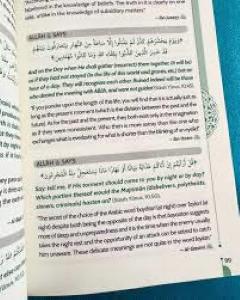 believed in the knowledge of beliefs. The truth in it is clearly on one
side, unlike in the knowledge of subsidiary matters"
ALLĀH ﷻ SAYS
﴿وَيَوْمَ يَحْشُرُهُمْ كَأَن لَّمْ يَلْبَثُوا إِلَّا سَاعَةً مِّنَ النَّهَارِ يَتَعَارَفُونَ بَيْنَهُمْ
قَدْ خَسِرَ الَّذِينَ كَذَّبُوا بِلِقَاءِ اللَّهِ وَمَا كَانُوا مُهْتَدِينَ﴾
And on the Day when He shall gather (resurrect) them together, (it will be)
as if they had not stayed (in the life of this world and graves, etc.) but an
hour of a day. They will recognise each other. Ruined indeed will be those
who denied the meeting with Allāh, and were not guided! [Sūrah Yūnus, 10:45].
"If you ponder upon the length of this life, you will find that it is actually just as
long as the present moment which is the division between the past and the
future. As for the past and the present, they both exist only in the imagination
as if they were nonexistent. Who then is more astray than the one in whose
exchange what is everlasting for what is shorter than the blinking of an eyelid?"
ALLĀH ﷻ SAYS
﴿قُلْ أَرَأَيْتُمْ إِنْ أَتَاكُمْ عَذَابُهُ بَيَاتًا أَوْ نَهَارًا مَّاذَا يَسْتَعْجِلُ مِنْهُ الْمُجْرِمُونَ﴾
Say: tell me, if His torment should come to you by night or by day?
Which portion thereof would the Mujrimūn (disbelievers, polytheists,
sinners, criminals) hasten on? [Sūrah Yūnus, 10:50].
"The secret of the choice of the Arabic word 'bayātan (at night) over 'laylan' (at
night) despite both being the opposite of day is that bayaatan suggests
more of sleep and unpreparedness and it is the time when the enemy usually
takes the night rest and the opportunity of an attack can be seized to attack
them unaware. These delicate meanings are not quite in the word laylan."
99